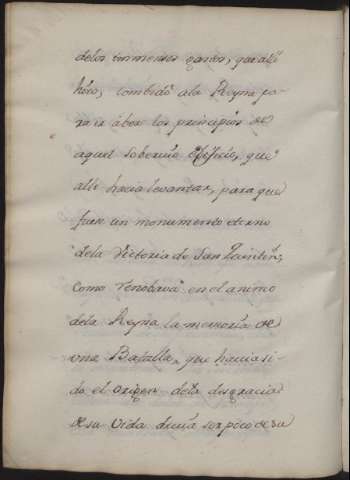 delos inmensos gastos, que alli
hizo, combidò ala Reyna pa-
ra ir àber los principios de
aquel soberuio Edificio, que
alli hacia levantar, para que
fuese un monumento eterno
dela Victoria de San Quintin;
Como renobava en el animo
dela Reyna la memoria de
una Batalla, que haviasi-
do el origen dela desgracia
de su Vida